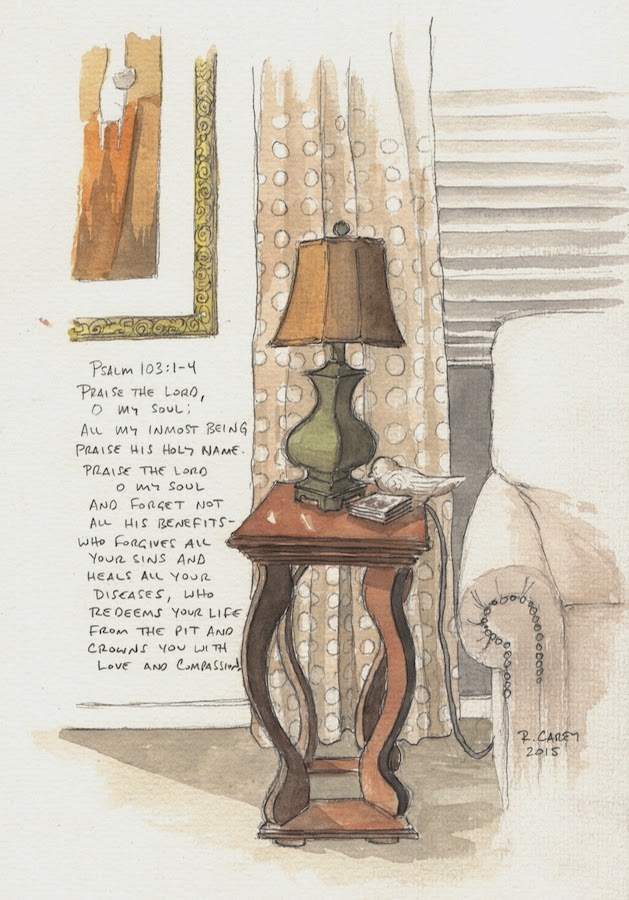 PSALM 103:1-4
PRAISE THE LORD,
O MY SOUL;
ALL MY INMOST BEING
PRAISE HIS HOLY NAME.
PRAISE THE LORD
O MY SOUL
AND FORGET NOT
ALL HIS BENEFITS-
WHO FORGIVES ALL
YOUR SINS AND
HEALS ALL YOUR
DISEASES, WHO
REDEEMS YOUR LIFE
FROM THE PIT AND
CROWNS YOU WITH
LOVE AND COMPASSION.
R. CAREY
2015